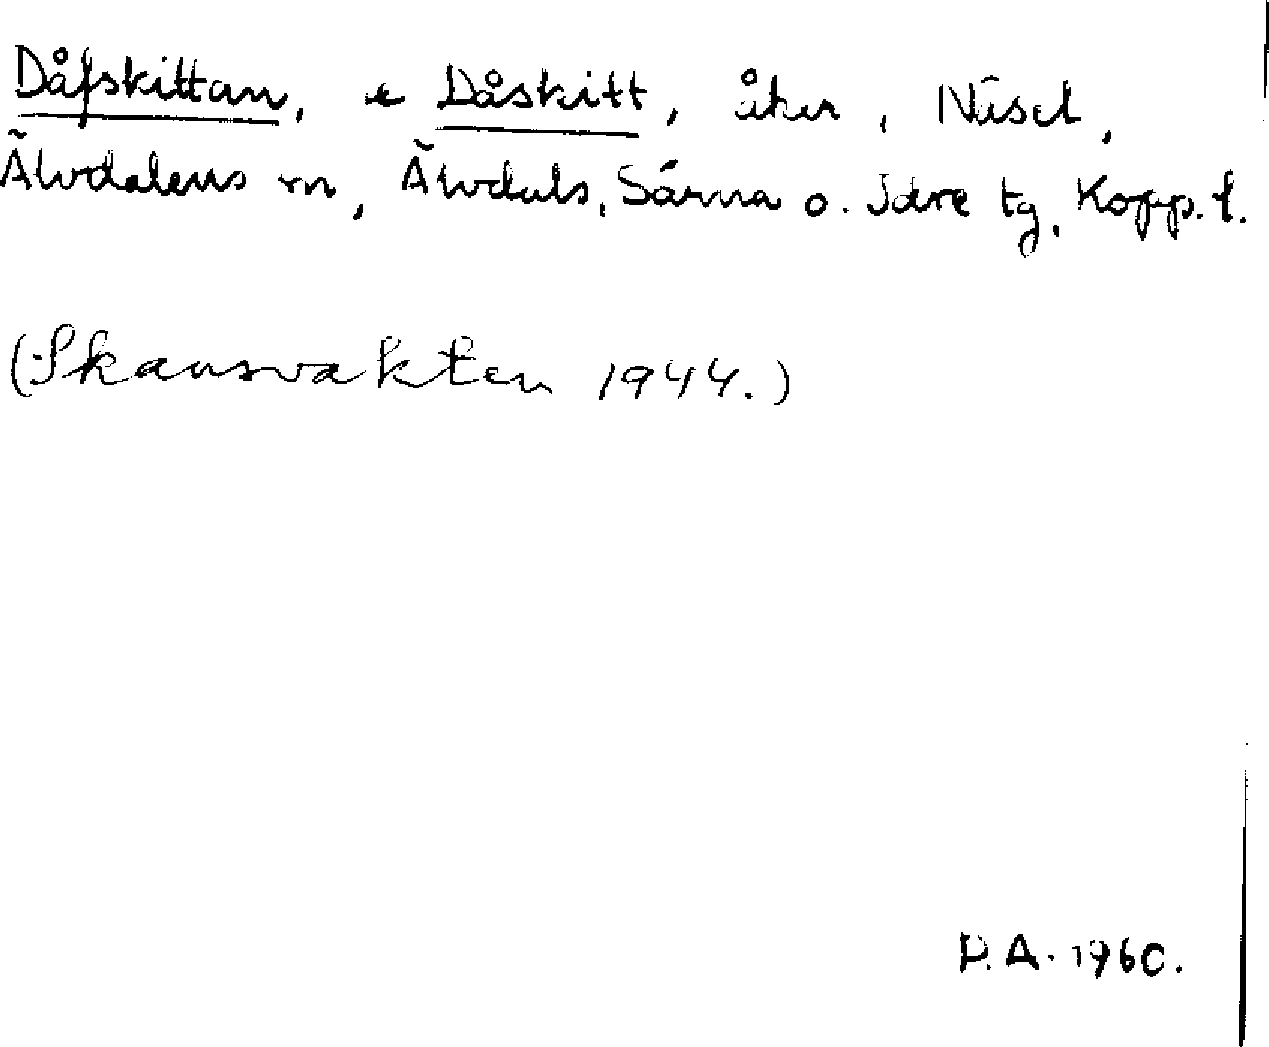 Dåfskittan, e Dåskitt, åker, Näset,
Älvdalens sn, Älvdals, Särna o. Idre tg, Kopp. l.
(Skansvakten 1944.)
P.A. 1960.